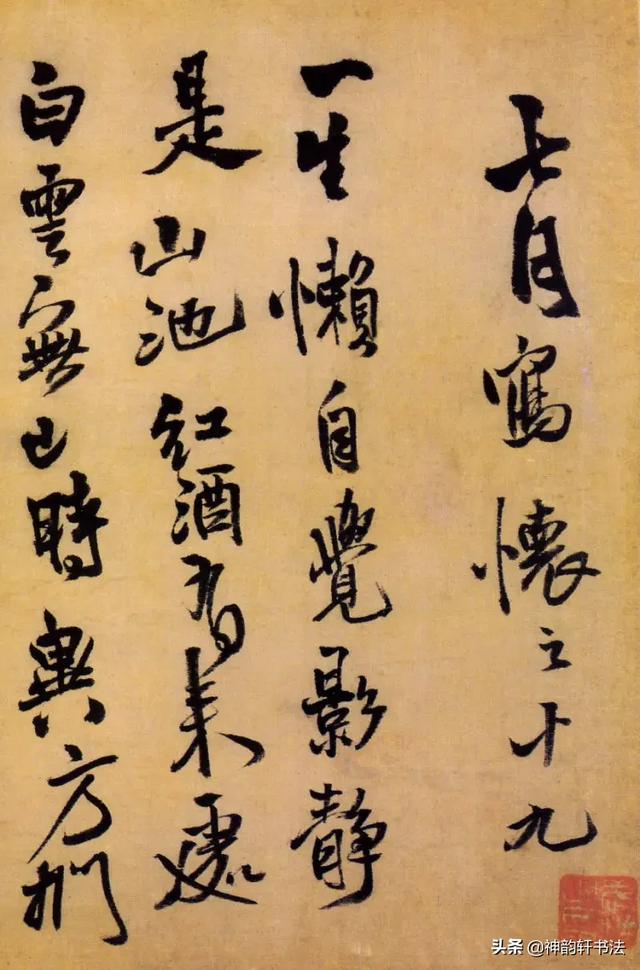 七月寫懷之十九
一生懶自覺影靜
是山池紅酒有來處
白雲無已時興方
头条@神韵轩书法